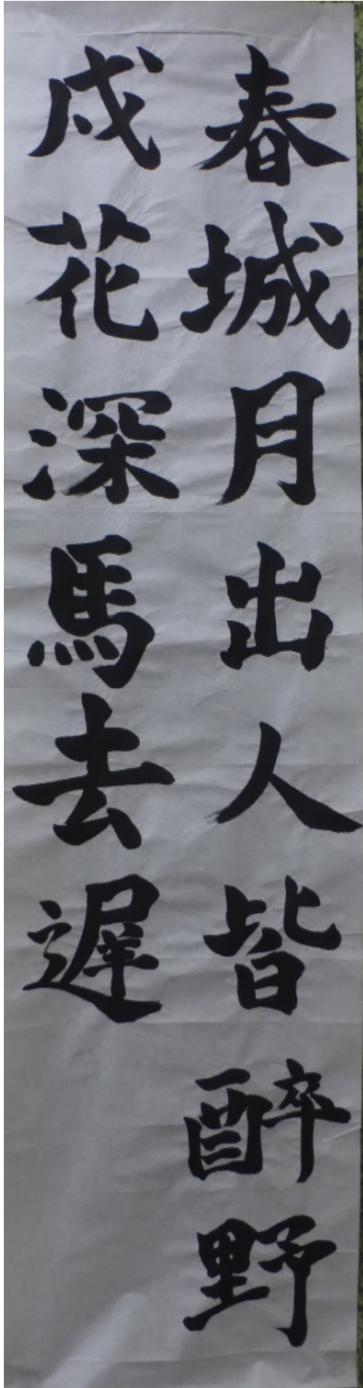 春城月出人皆醉野
戍花深馬去遲